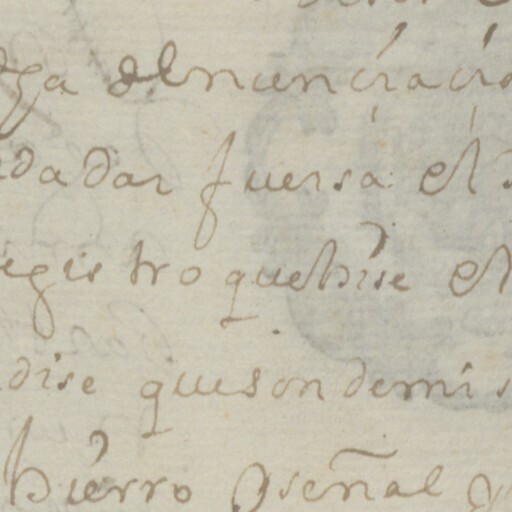 denuncia
da dar fuersa el
egistro que hise el
dise que son de mi
hierro y señal